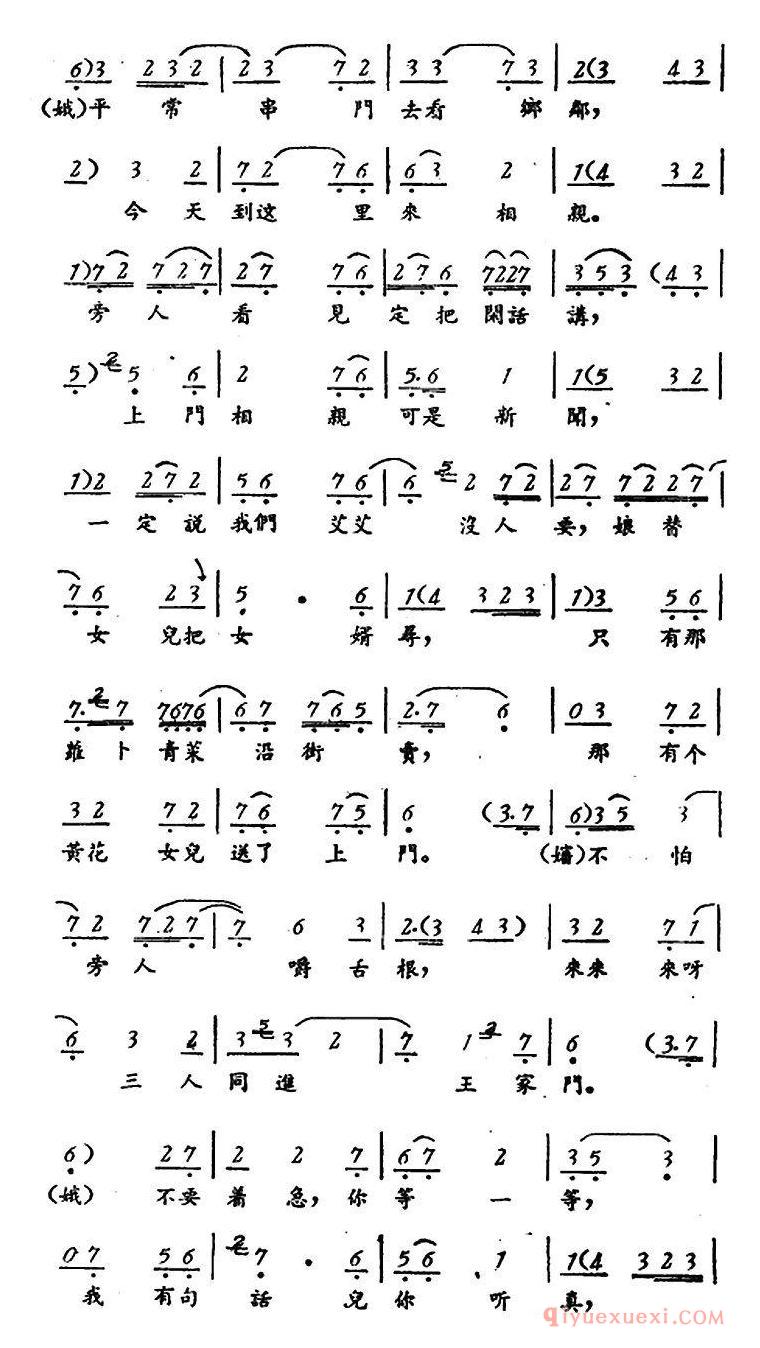 6)3 232 | 23 72 | 33 73 | 2(3 43 |
(娥)平常串門去看鄉鄰，
2) 3 2 | 72 76 | 63 2 | 1(4 32 |
今天到这里來相親。
1)72 727 | 27 76 | 276 7227 | 353 (43 |
旁人看見定把閑話講，
5) 2 5 6 | 2 76 | 5.6 1 | 1(5 32 |
上門相親可是新聞，
1)2 272 | 56 76 | 6 5 2 72 | 27 72227 |
一定説我們艾艾沒人要，娘替
76 23 | 5 · 6 | 1(4 323 | 1)3 56 |
女兒把女婿尋，只有那
7. 2 7 7676 | 67 765 | 2.7 6 | 03 72 |
蘿卜青菜沿街賣，那有个
32 72 | 76 75 | 6 (3.7 | 6)35 3 |
黃花女兒送了上門。(嬸)不怕
72 727 | 7 6 3 | 2.(3 43) | 32 71 |
旁人嚼舌根，來來來呀
6 3 2 | 3 5 3 2 | 7 1 2 7 | 6 (3.7 |
三人同進王家門。
6) 27 | 2 2 7 | 67 2 | 35 3 |
(娥)不要着急，你等一等，
07 56 | 2 7 · 6 | 56 1 | 1(4 323 |
我有句話兒你听真，
qiyuexuexi.COM